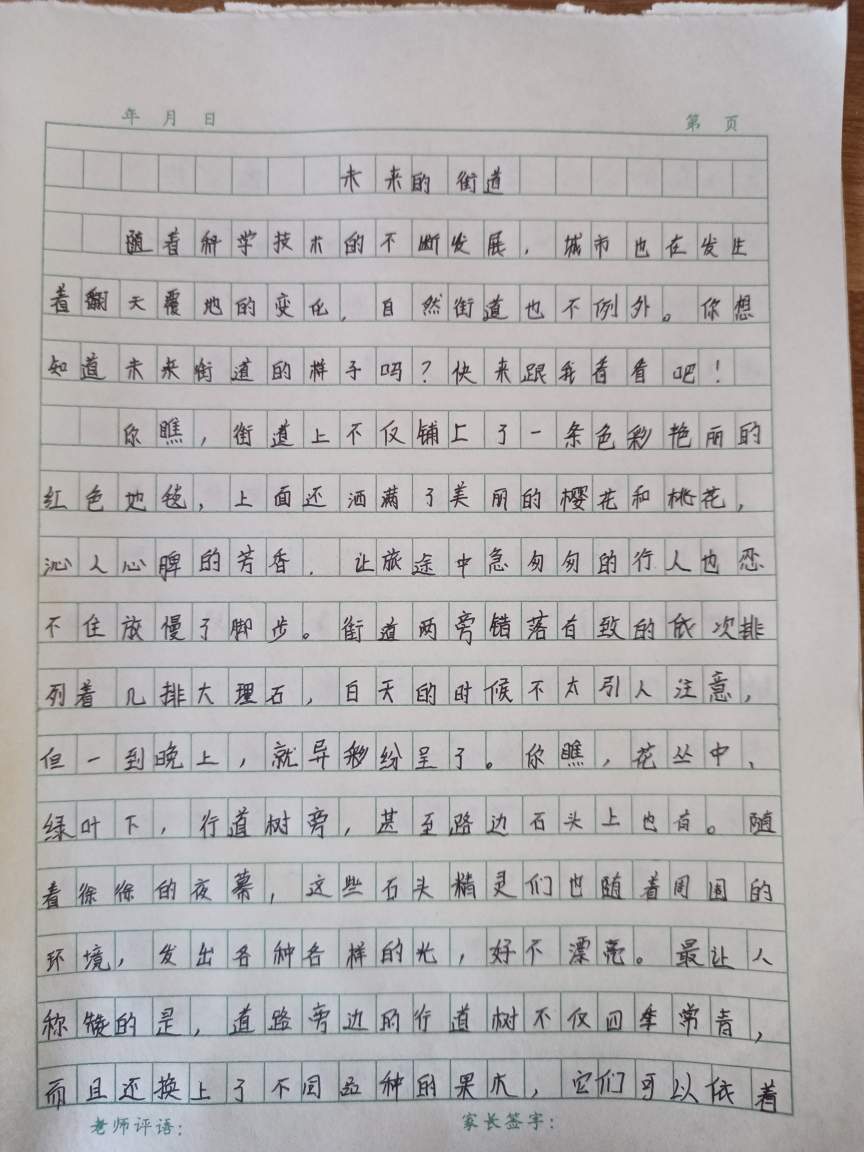 年 月 日 第 页
未来的街道
随着科学技术的不断发展，城市也在发生
着翻天覆地的变化，自然街道也不例外。你想
知道未来街道的样子吗？快来跟我看看吧！
你瞧，街道上不仅铺上了一条色彩艳丽的
红色地毯，上面还洒满了美丽的樱花和桃花，
沁人心脾的芳香，让旅途中急匆匆的行人也恋
不住放慢了脚步。街道两旁错落有致的依次排
列着几排大理石，白天的时候不太引人注意，
但一到晚上，就异彩纷呈了。你瞧，花丛中、
绿叶下，行道树旁，甚至路边石头上也有。随
着徐徐的夜幕，这些石头精灵们也随着周围的
环境，发出各种各样的光，好不漂亮。最让人
称的是，道路旁边的行道树不仅四季常青，
而且还换上了不同品种的果木，它们可以依着
老师评语： 家长签字：